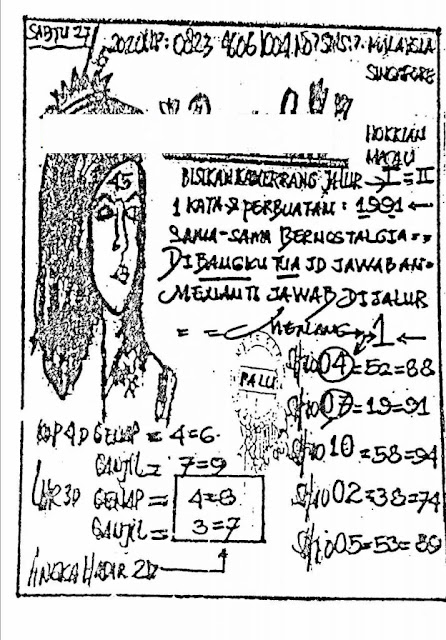 SABTU 27
2020 WP: 0823 4606 1004 ND? SNS: ? MALAYSIA
SINGAPORE
HOKKIAN
MACAU
45
BISIKAN KAMERRANG JALUR → I = II
1 KATA & PERBUATAN: 1991 ←
SAMA-SAMA BERNOSTALGIA = =
DI BANGKU TUA JD JAWABAN =
MENANTI JAWAB DIJALUR
= = MENANG → 1 ←
PALU
Shio 04 = 52 = 88
Shio 07 = 19 = 91
Shio 10 = 58 = 94
Shio 02 = 38 = 74
Shio 05 = 53 = 89
KOP 4D GENAP = 4=6
GANJIL = 7=9
3D GENAP = 4=8
GANJIL = 3=7
4
ANGKA HADIR 2D